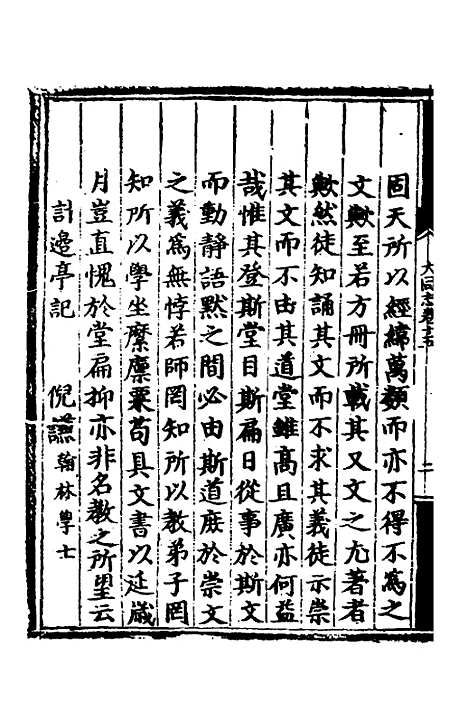 固天所以經緯萬類而亦不得不為之
文歟至若方冊所載其又文之尤著者
歟然徒知誦其文而不求其義徒示崇
其文而不由其道堂雖高且廣亦何益
哉惟其登斯堂目斯扁日從事於斯文
而動靜語默之間必由斯道庶於崇文
之義為無悖若師罔知所以教弟子罔
知所以學坐縻廩粟苟具文書以延歲
月豈直愧於堂扁抑亦非名教之所望云
討邊亭記 倪謙翰林學士